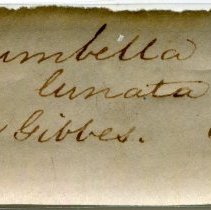 umbella
lunata
Gibbes.